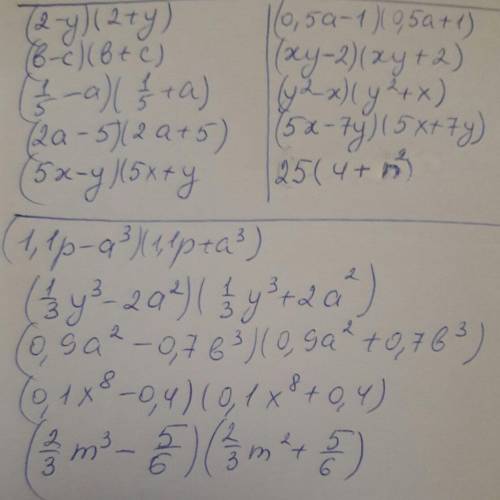 (2-y)(2+y)
(в-с)(в+с)
(1/5 -a)(1/5 +a)
(2a-5)(2a+5)
(5x-y)(5x+y
(0,5a-1)(0,5a+1)
(xy-2)(xy+2)
(y²-x)(y²+x)
(5x-7y)(5x+7y)
25(4+n²)
(1,1p-a³)(1,1p+a³)
(1/3 y³-2a²)(1/3 y³+2a²)
(0,9a²-0,7в³)(0,9a²+0,7в³)
(0,1x⁸-0,4)(0,1x⁸+0,4)
(2/3 m³-5/6)(2/3 m²+5/6)